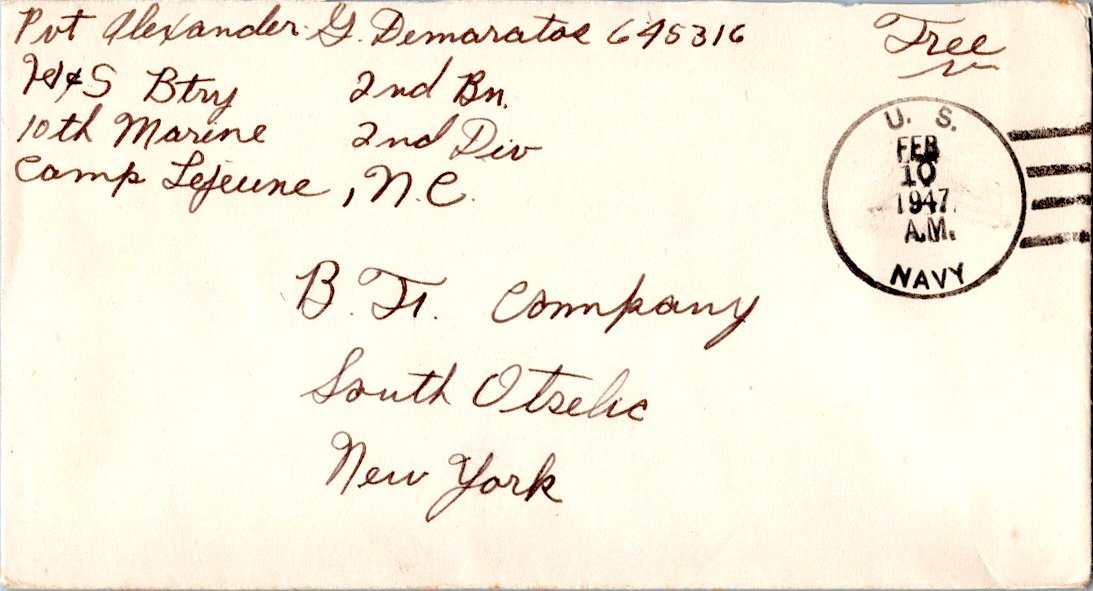 Pvt Alexander G. Demaratos 645316
Free
H&S Btry 2nd Bn.
10th Marine 2nd Div
Camp Lejeune, N.C.
U. S.
FEB
10
1947
A.M.
NAVY
B. Ft. Company
South Otselic
New York